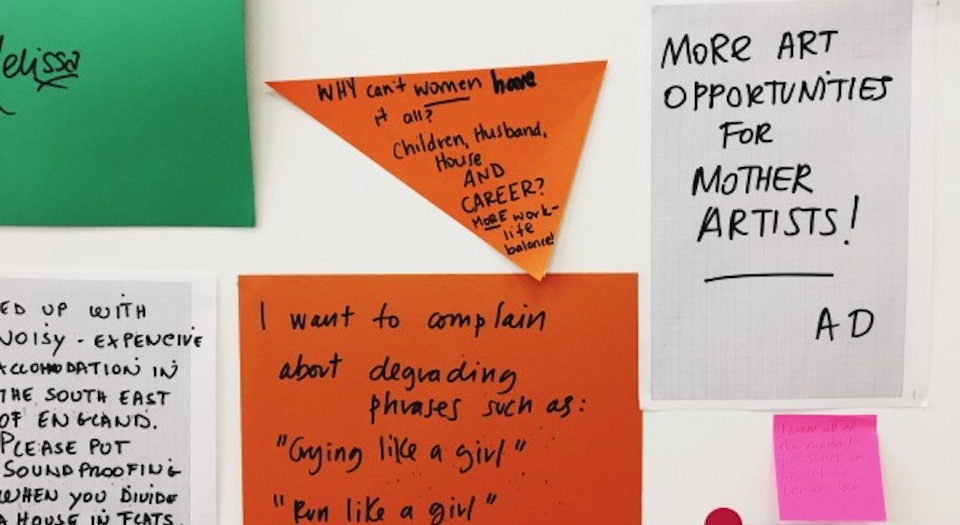 elissa
WHY can't women have
it all?
Children, Husband,
House
AND
CAREER?
MORE work-
life
balance!
MORE ART
OPPORTUNITIES
FOR
MOTHER
ARTISTS!
AD
ED UP WITH
NOISY - EXPENCIVE
ACCOMODATION IN
THE SOUTH EAST
OF ENGLAND.
PLEASE PUT
SOUNDPROOFING
WHEN YOU DIVIDE
A HOUSE IN FLATS.
I want to complain
about degrading
phrases such as:
"Crying like a girl"
"Run like a girl"
I want all of